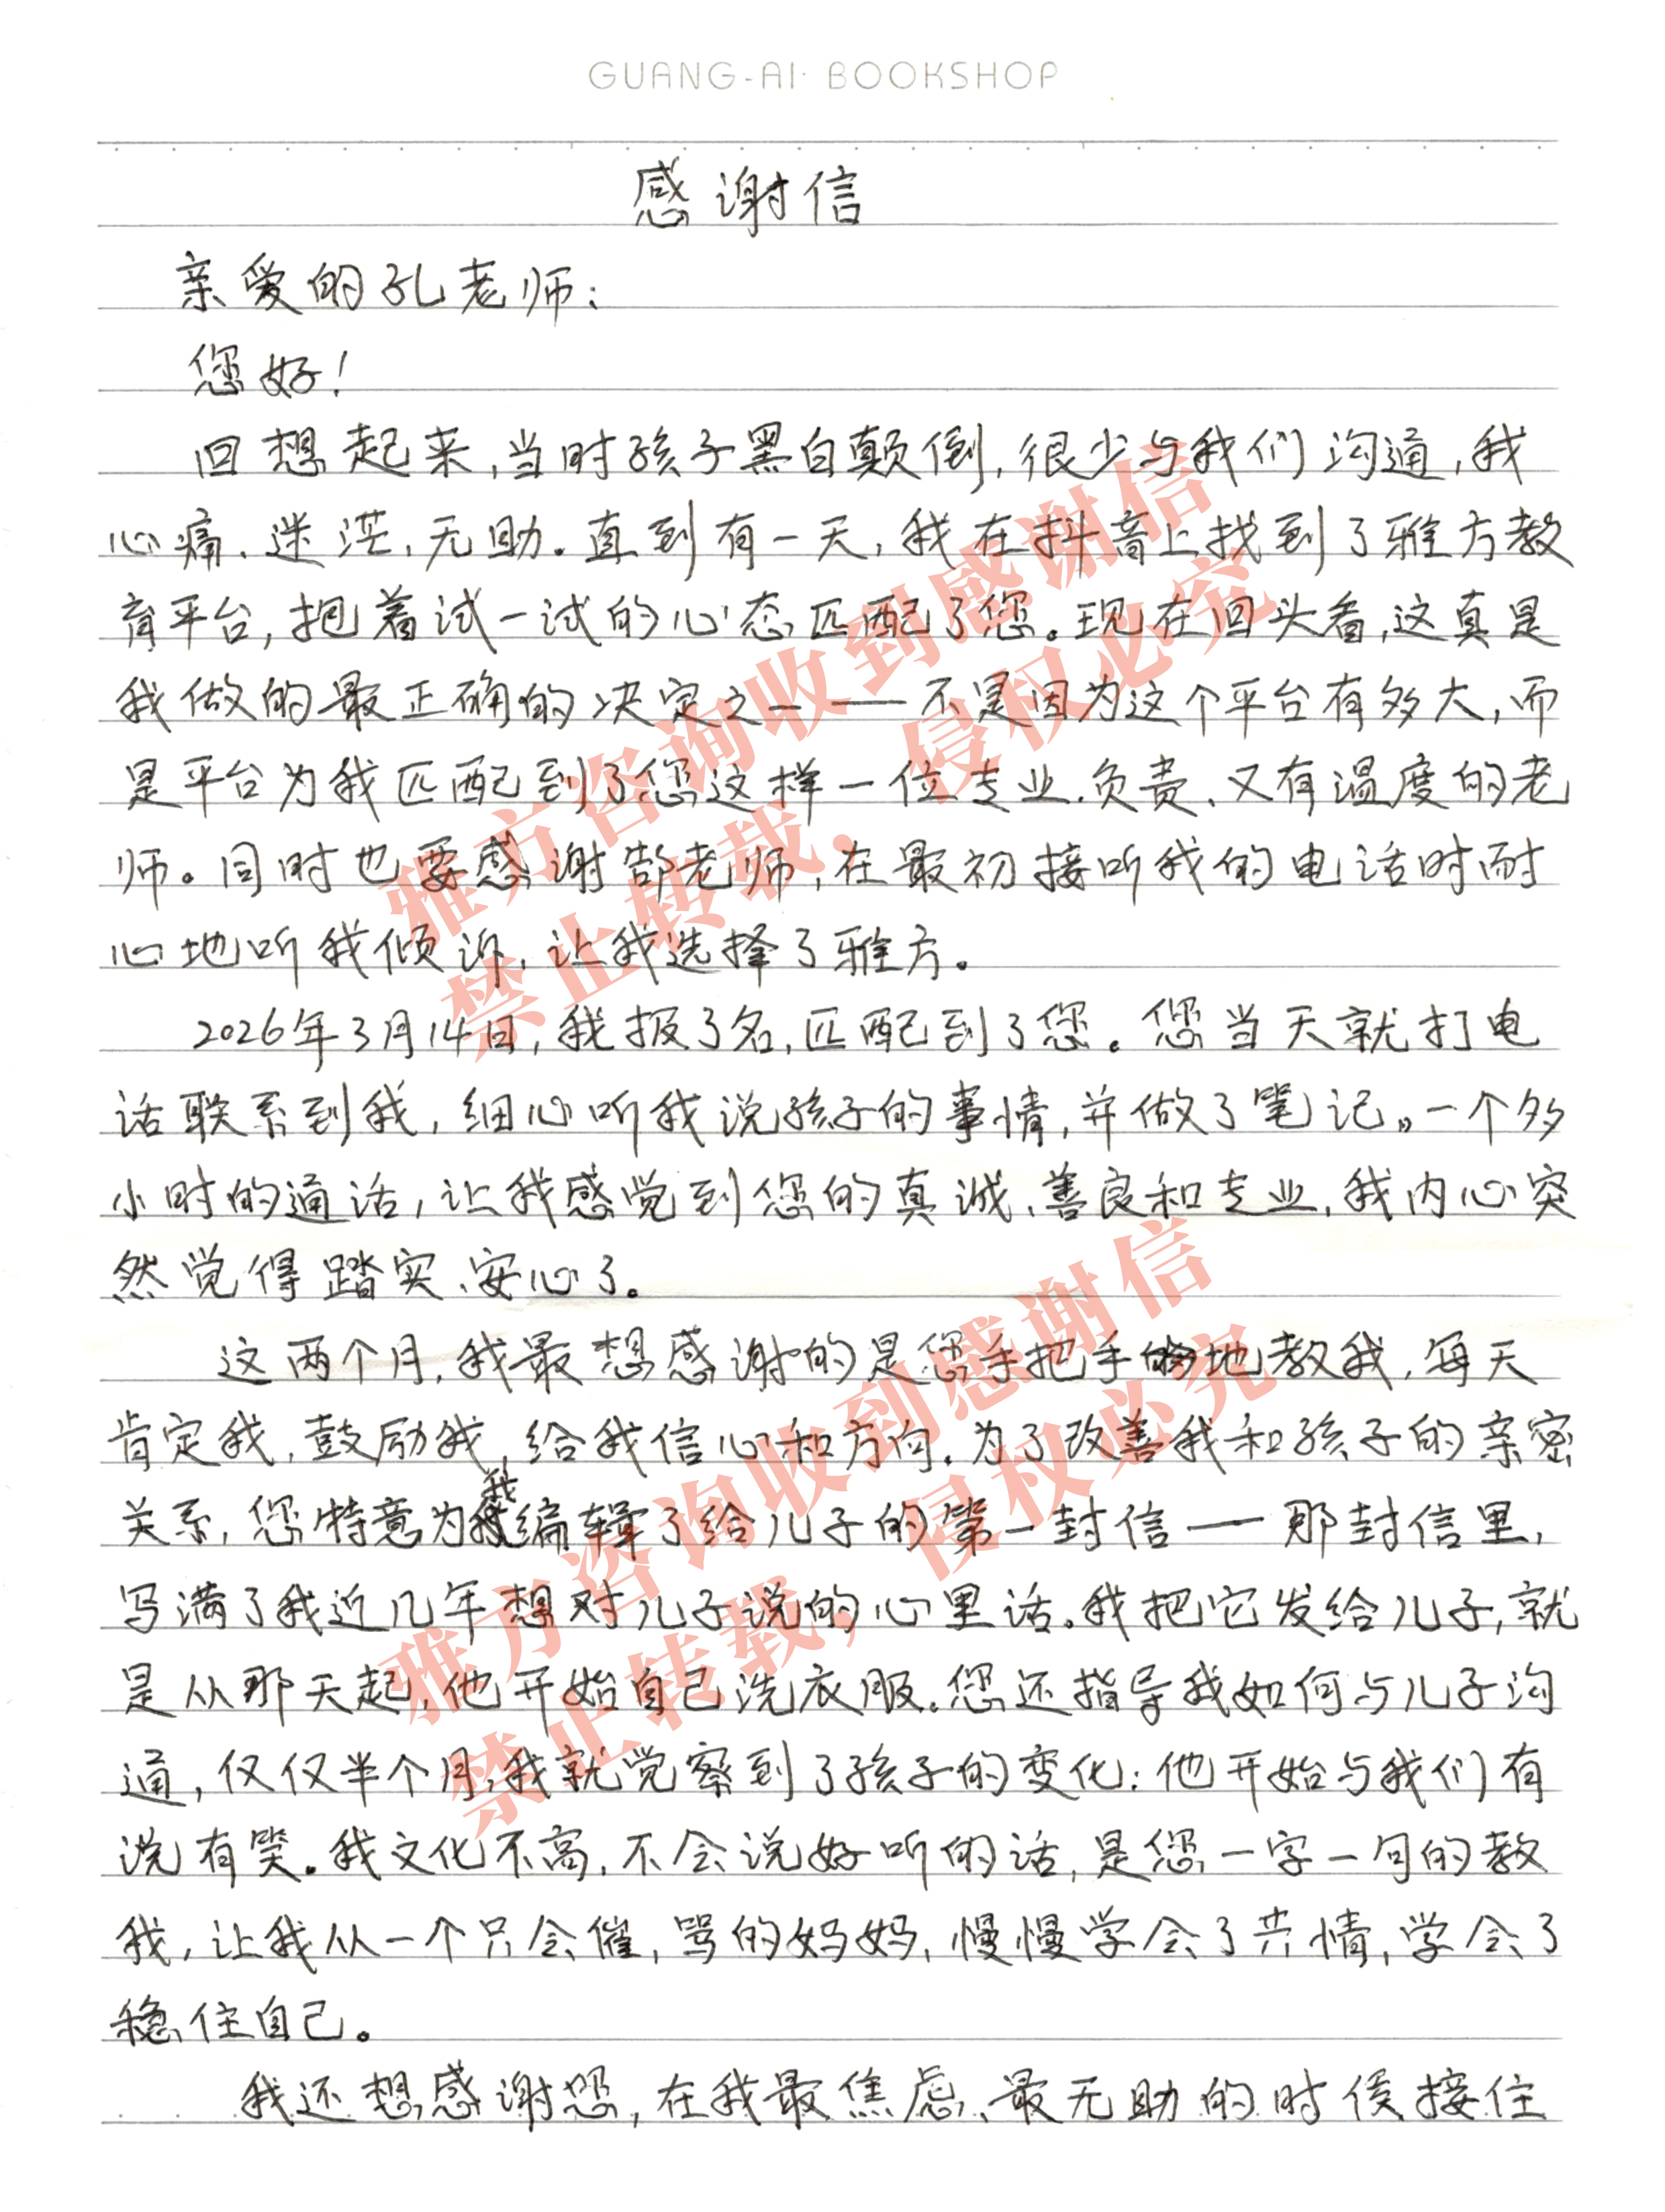 GUANG-AI· BOOKSHOP
感谢信
亲爱的孔老师：
您好！
回想起来，当时孩子黑白颠倒，很少与我们沟通，我
心痛、迷茫，无助。直到有一天，我在抖音上找到了雅方教
育平台，抱着试一试的心态匹配了您。现在回头看，这真是
我做的最正确的决定之一——不是因为这个平台有多大，而
是平台为我匹配到了您这样一位专业、负责、又有温度的老
师。同时也要感谢郜老师，在最初接听我的电话时耐
心地听我倾诉，让我选择了雅方。
2026年3月14日，我报了名，匹配到了您。您当天就打电
话联系到我，细心听我说孩子的事情，并做了笔记。一个多
小时的通话，让我感觉到您的真诚、善良和专业，我内心突
然觉得踏实、安心了。
这两个月，我最想感谢的是您手把手地教我，每天
肯定我，鼓励我，给我信心和方向。为了改善我和孩子的亲密
关系，您特意为我编辑了给儿子的第一封信——那封信里，
写满了我近几年想对儿子说的心里话。我把它发给儿子，就
是从那天起，他开始自己洗衣服。您还指导我如何与儿子沟
通，仅仅半个月，我就觉察到了孩子的变化：他开始与我们有
说有笑。我文化不高，不会说好听的话，是您一字一句的教
我，让我从一个只会催，骂的妈妈，慢慢学会了共情，学会了
稳住自己。
我还想感谢您，在我最焦虑、最无助的时候接住
雅方咨询收到感谢信
禁止转载，侵权必究
雅方咨询收到感谢信
禁止转载，侵权必究